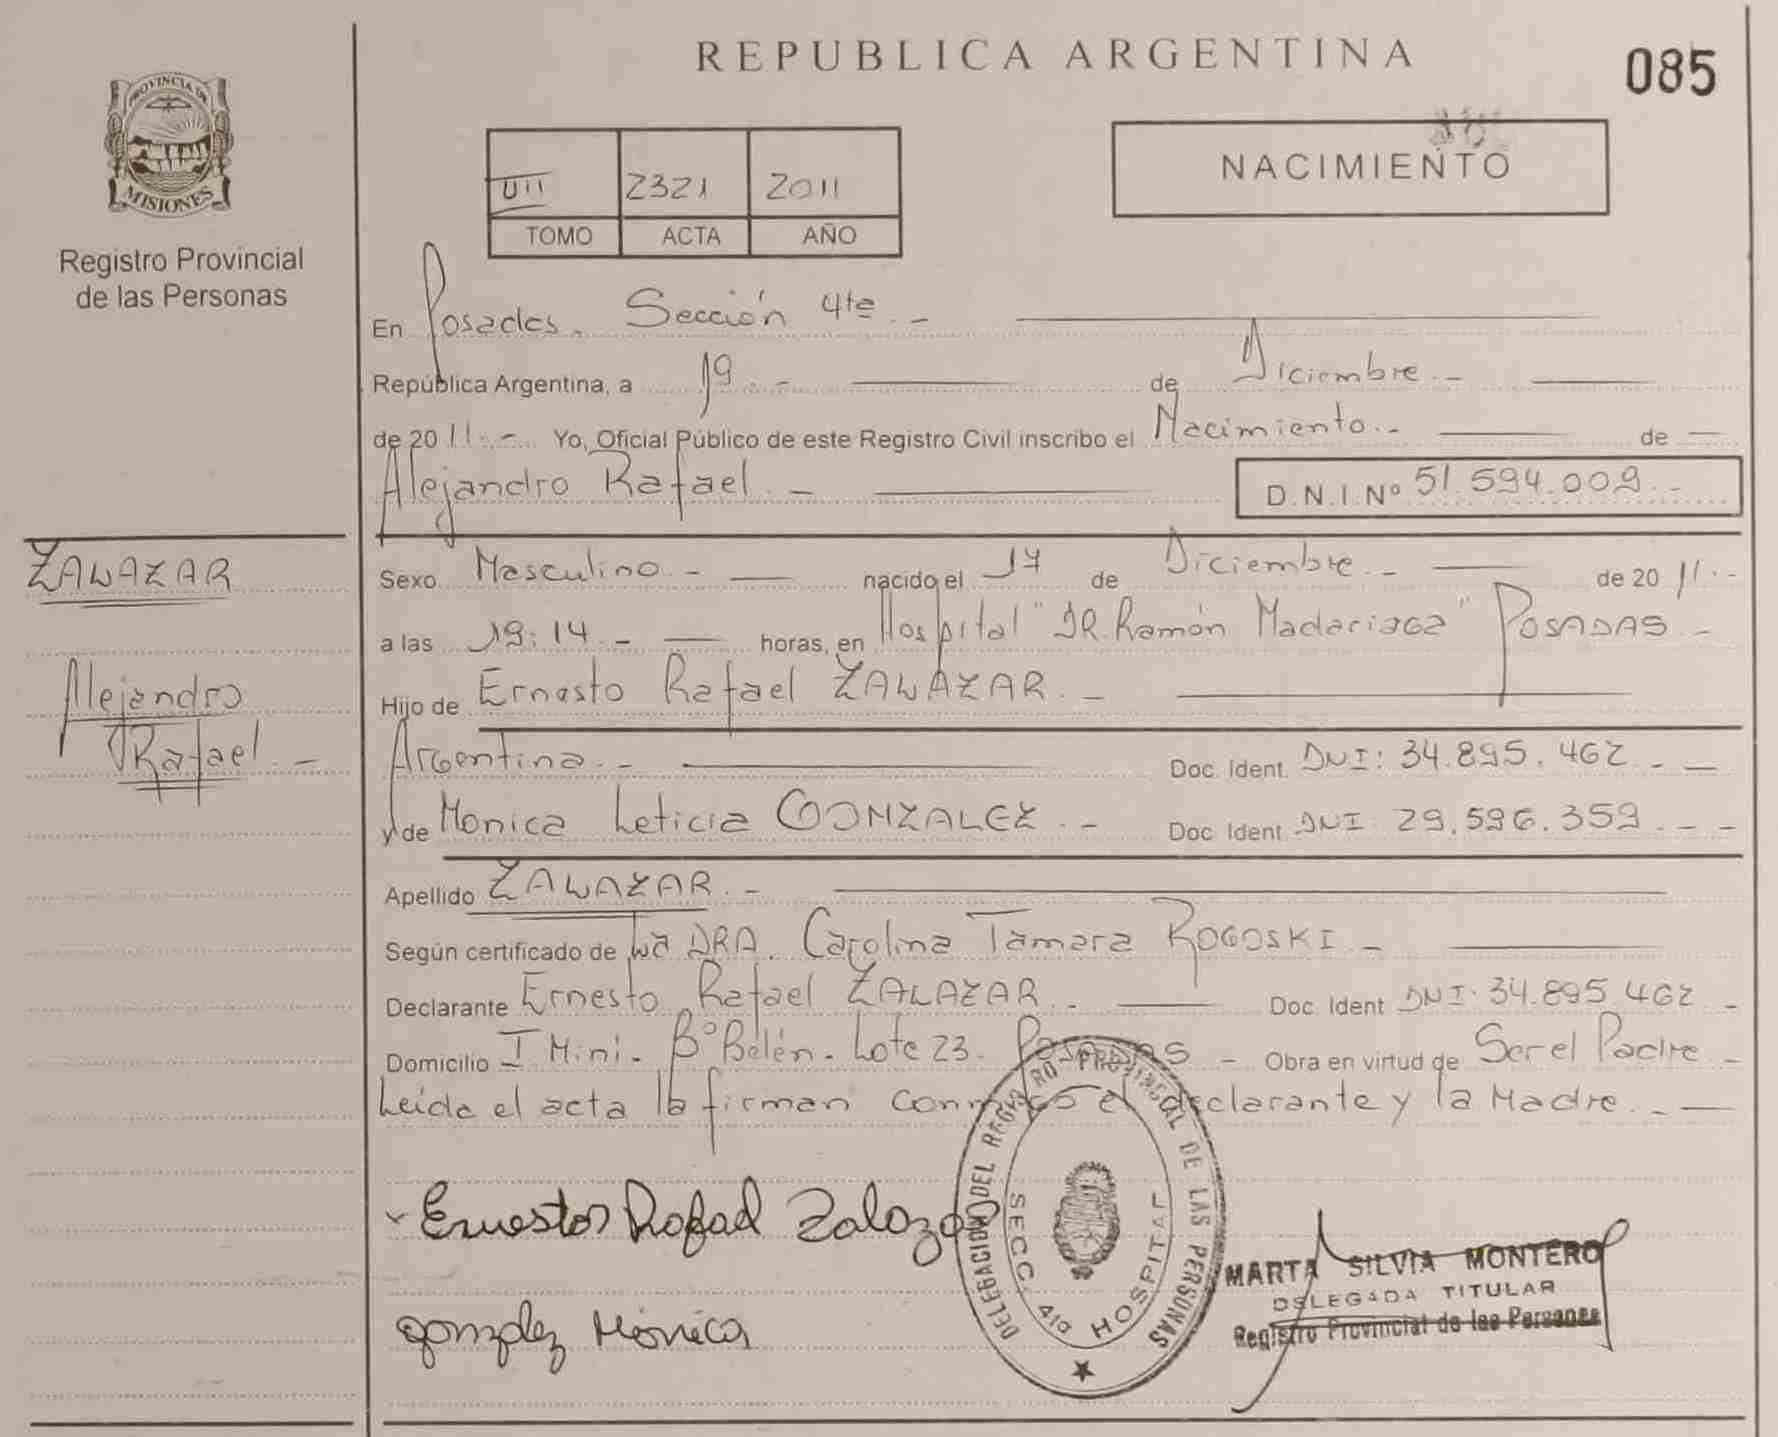 REPUBLICA ARGENTINA
085
PROVINCIA DE
MISIONES
Registro Provincial
de las Personas
VII 2321 2011
TOMO ACTA AÑO
NACIMIENTO
En Posadas. Sección 4ta. -
República Argentina, a 19. - de Diciembre. -
de 2011. - Yo, Oficial Público de este Registro Civil inscribo el Nacimiento. - de -
Alejandro Rafael. - D.N.I.Nº 51.594.009. -
ZALAZAR
Alejandro
Rafael. -
Sexo Masculino. - nacido el 17 de Diciembre. - de 2011. -
a las 19:14. - horas, en Hospital "DR. Ramón Madariaga" POSADAS -
Hijo de Ernesto Rafael ZALAZAR. -
Argentina. - Doc. Ident. DNI: 34.895.462. - -
y de Monica Leticia GONZALEZ. - Doc. Ident. DNI: 29.596.359. - -
Apellido ZALAZAR. -
Según certificado de La DRA. Carolina Tamara ROGOSKI. -
Declarante Ernesto Rafael ZALAZAR. - Doc. Ident. DNI: 34.895.462 -
Domicilio I Mini. Bº Belén. Lote 23. POSADAS - Obra en virtud de Ser el Padre -
Leída el acta la firman conmigo el declarante y la Madre. -
Ernesto Rafael Zalazar
Gonzalez Mónica
DELEGACION DEL REGISTRO PROVINCIAL DE LAS PERSONAS
SECC. 4ta HOSPITAL
MARTA SILVIA MONTERO
DELEGADA TITULAR
Registro Provincial de las Personas